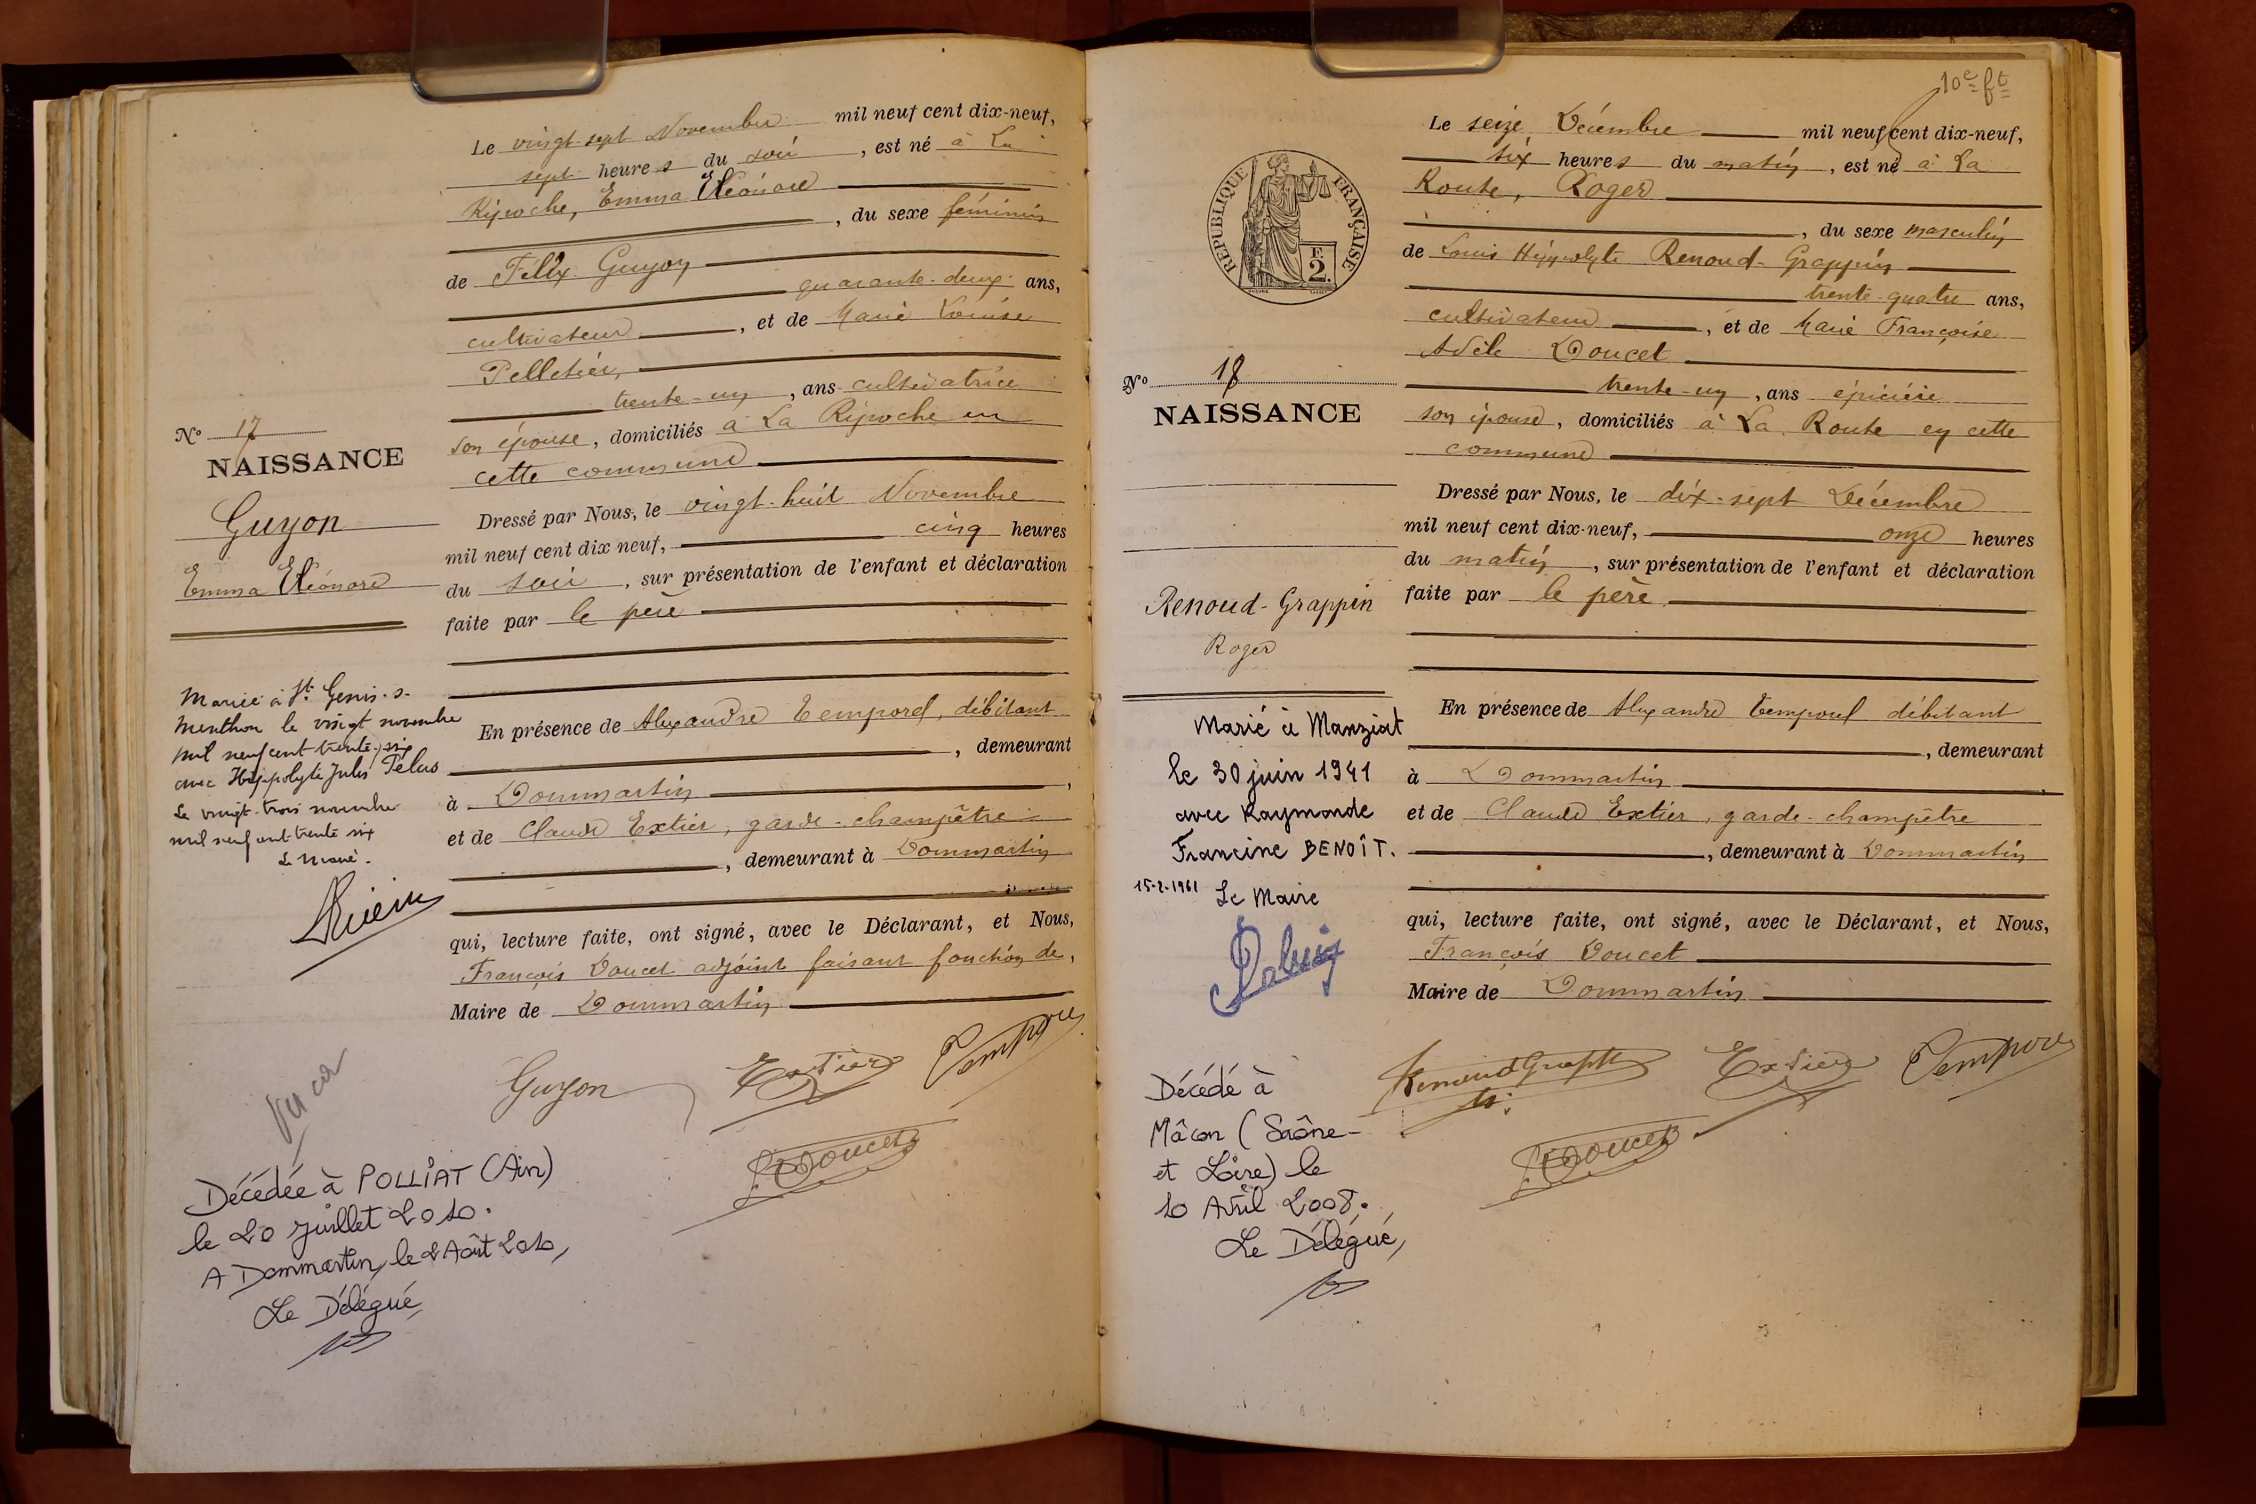 Le vingt-sept Novembre mil neuf cent dix-neuf,
sept heures du soir, est né à La
Ripoche, Emma Eléonore
, du sexe féminin
de Félix Guyon
quarante-deux ans,
cultivateur, et de Marie Louise
Pelletier,
trente-un, ans cultivatrice
son épouse, domiciliés à La Ripoche en
cette commune
Dressé par Nous, le vingt-huit Novembre
mil neuf cent dix neuf, cinq heures
du soir, sur présentation de l'enfant et déclaration
faite par le père
En présence de Alexandre Temporel, débitant
, demeurant
à Dommartin,
et de Claude Extier, garde-champêtre
, demeurant à Dommartin
qui, lecture faite, ont signé, avec le Déclarant, et Nous,
François Doucet adjoint faisant fonction de,
Maire de Dommartin
Guyon Extier
F. Doucet
N° 17
NAISSANCE
Guyon
Emma Eléonore
Mariée à St Genis-s-
Menthon le vingt novembre
mil neuf cent trente-six
avec Hippolyte Jules Pélus
Le vingt-trois novembre
mil neuf cent trente six
Le Maire.
Décédée à POLLIAT (Ain)
le 20 juillet 2010.
A Dommartin, le 2 Août 2010,
Le Délégué,
10e ft
RÉPUBLIQUE FRANÇAISE
F.
2
Le seize Décembre mil neuf cent dix-neuf,
six heures du matin, est né à La
Route, Roger
, du sexe masculin
de Louis Hippolyte Renoud-Grappin
trente-quatre ans,
cultivateur, et de Marie Françoise
Adèle Doucet
trente-un, ans épicière
son épouse, domiciliés à La Route en cette
commune
Dressé par Nous, le dix-sept Décembre
mil neuf cent dix-neuf, onze heures
du matin, sur présentation de l'enfant et déclaration
faite par le père
En présence de Alexandre Temporel débitant
, demeurant
à Dommartin
et de Claude Extier, garde-champêtre
, demeurant à Dommartin
qui, lecture faite, ont signé, avec le Déclarant, et Nous,
François Doucet
Maire de Dommartin
Extier
F. Doucet
N° 18
NAISSANCE
Renoud-Grappin
Roger
Marié à Manziat
le 30 juin 1941
avec Raymonde
Francine BENOÎT.
15-2-1961 Le Maire
Décédé à
Mâcon (Saône-
et Loire) le
10 Avril 2008.
Le Délégué,